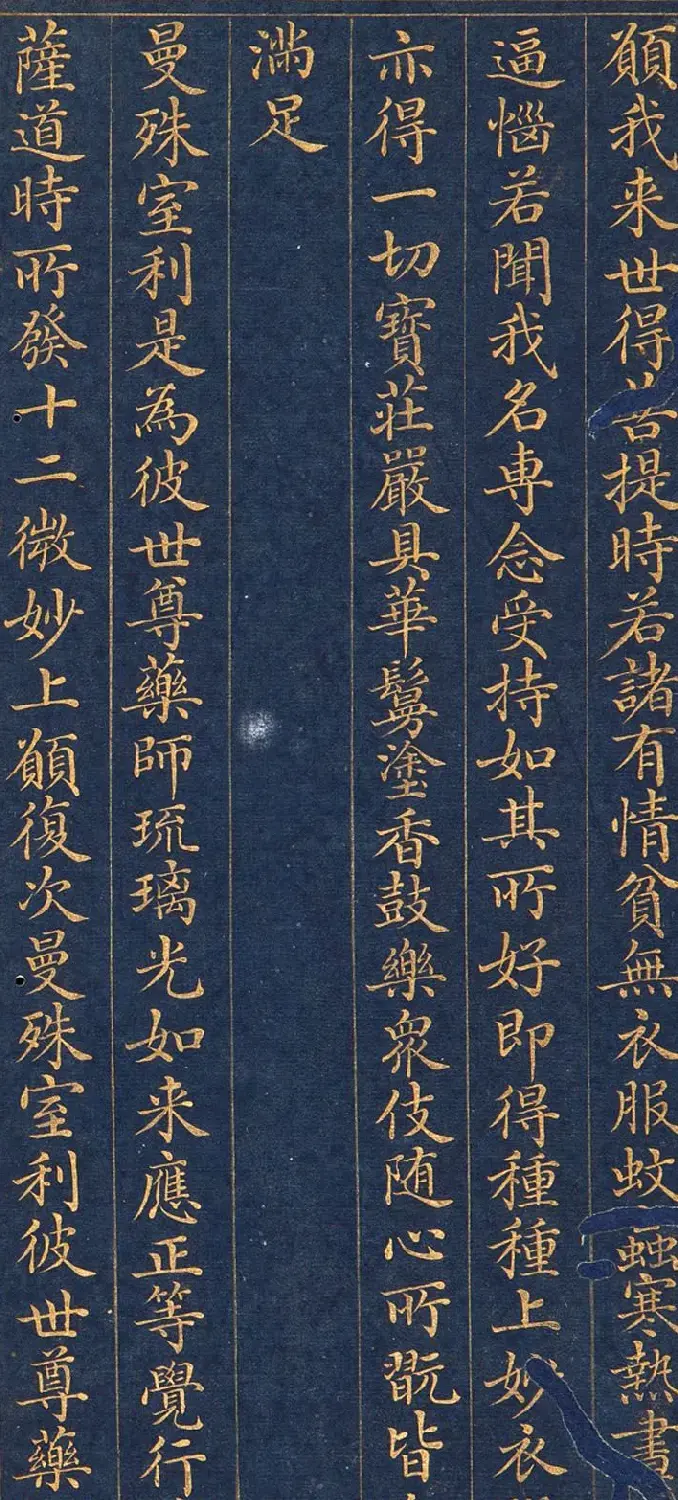 願我来世得菩提時若諸有情貧無衣服蚊蝱寒熱晝
逼惱若聞我名専念受持如其所好即得種種上妙衣
亦得一切寳莊嚴具華鬘塗香鼓樂衆伎随心所翫皆
滿足
曼殊室利是為彼世尊藥師琉璃光如来應正等覺行
薩道時所發十二微妙上願復次曼殊室利彼世尊藥